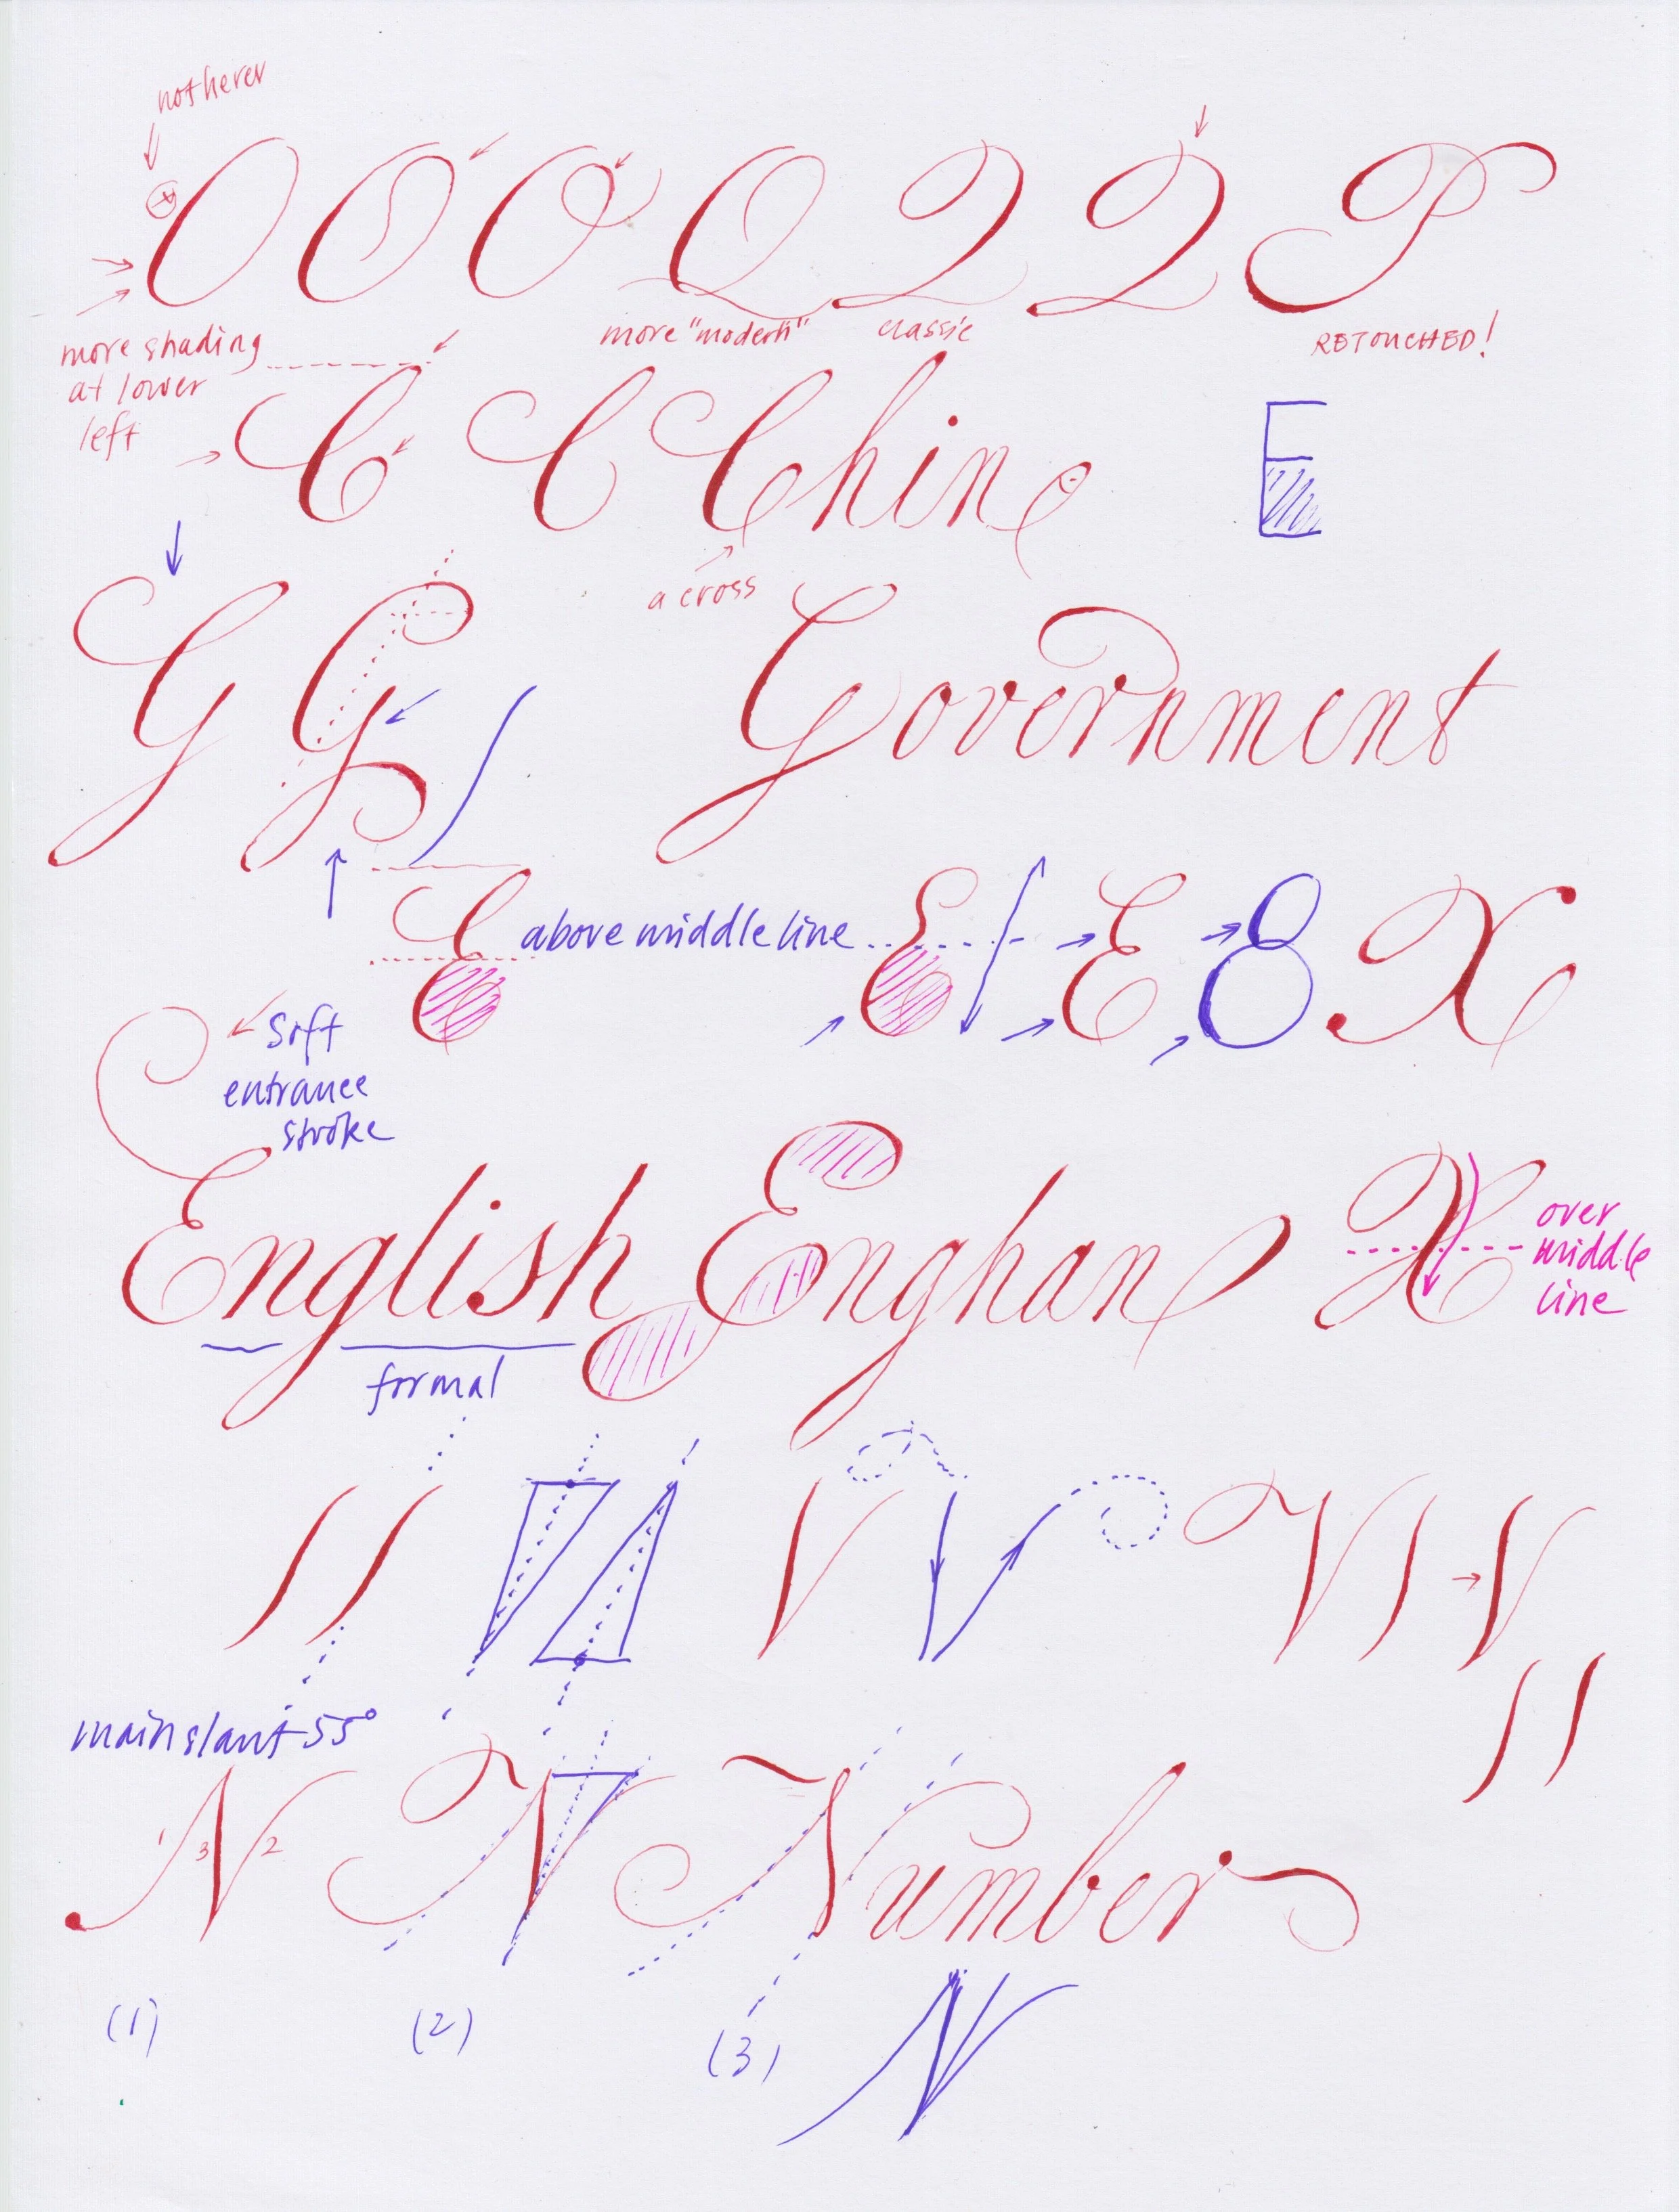 not herer
O O O Q Q Q P
more shading
at lower
left
more "modern"
classic
RETOUCHED!
C C Chine
E
a cross
G G Government
E above middle line E E E X
Soft
entrance
stroke
English Enghan X
over
middle
line
formal
V V V V
main slant 55°
1 3 2
N N Number
(1) (2) (3)
N